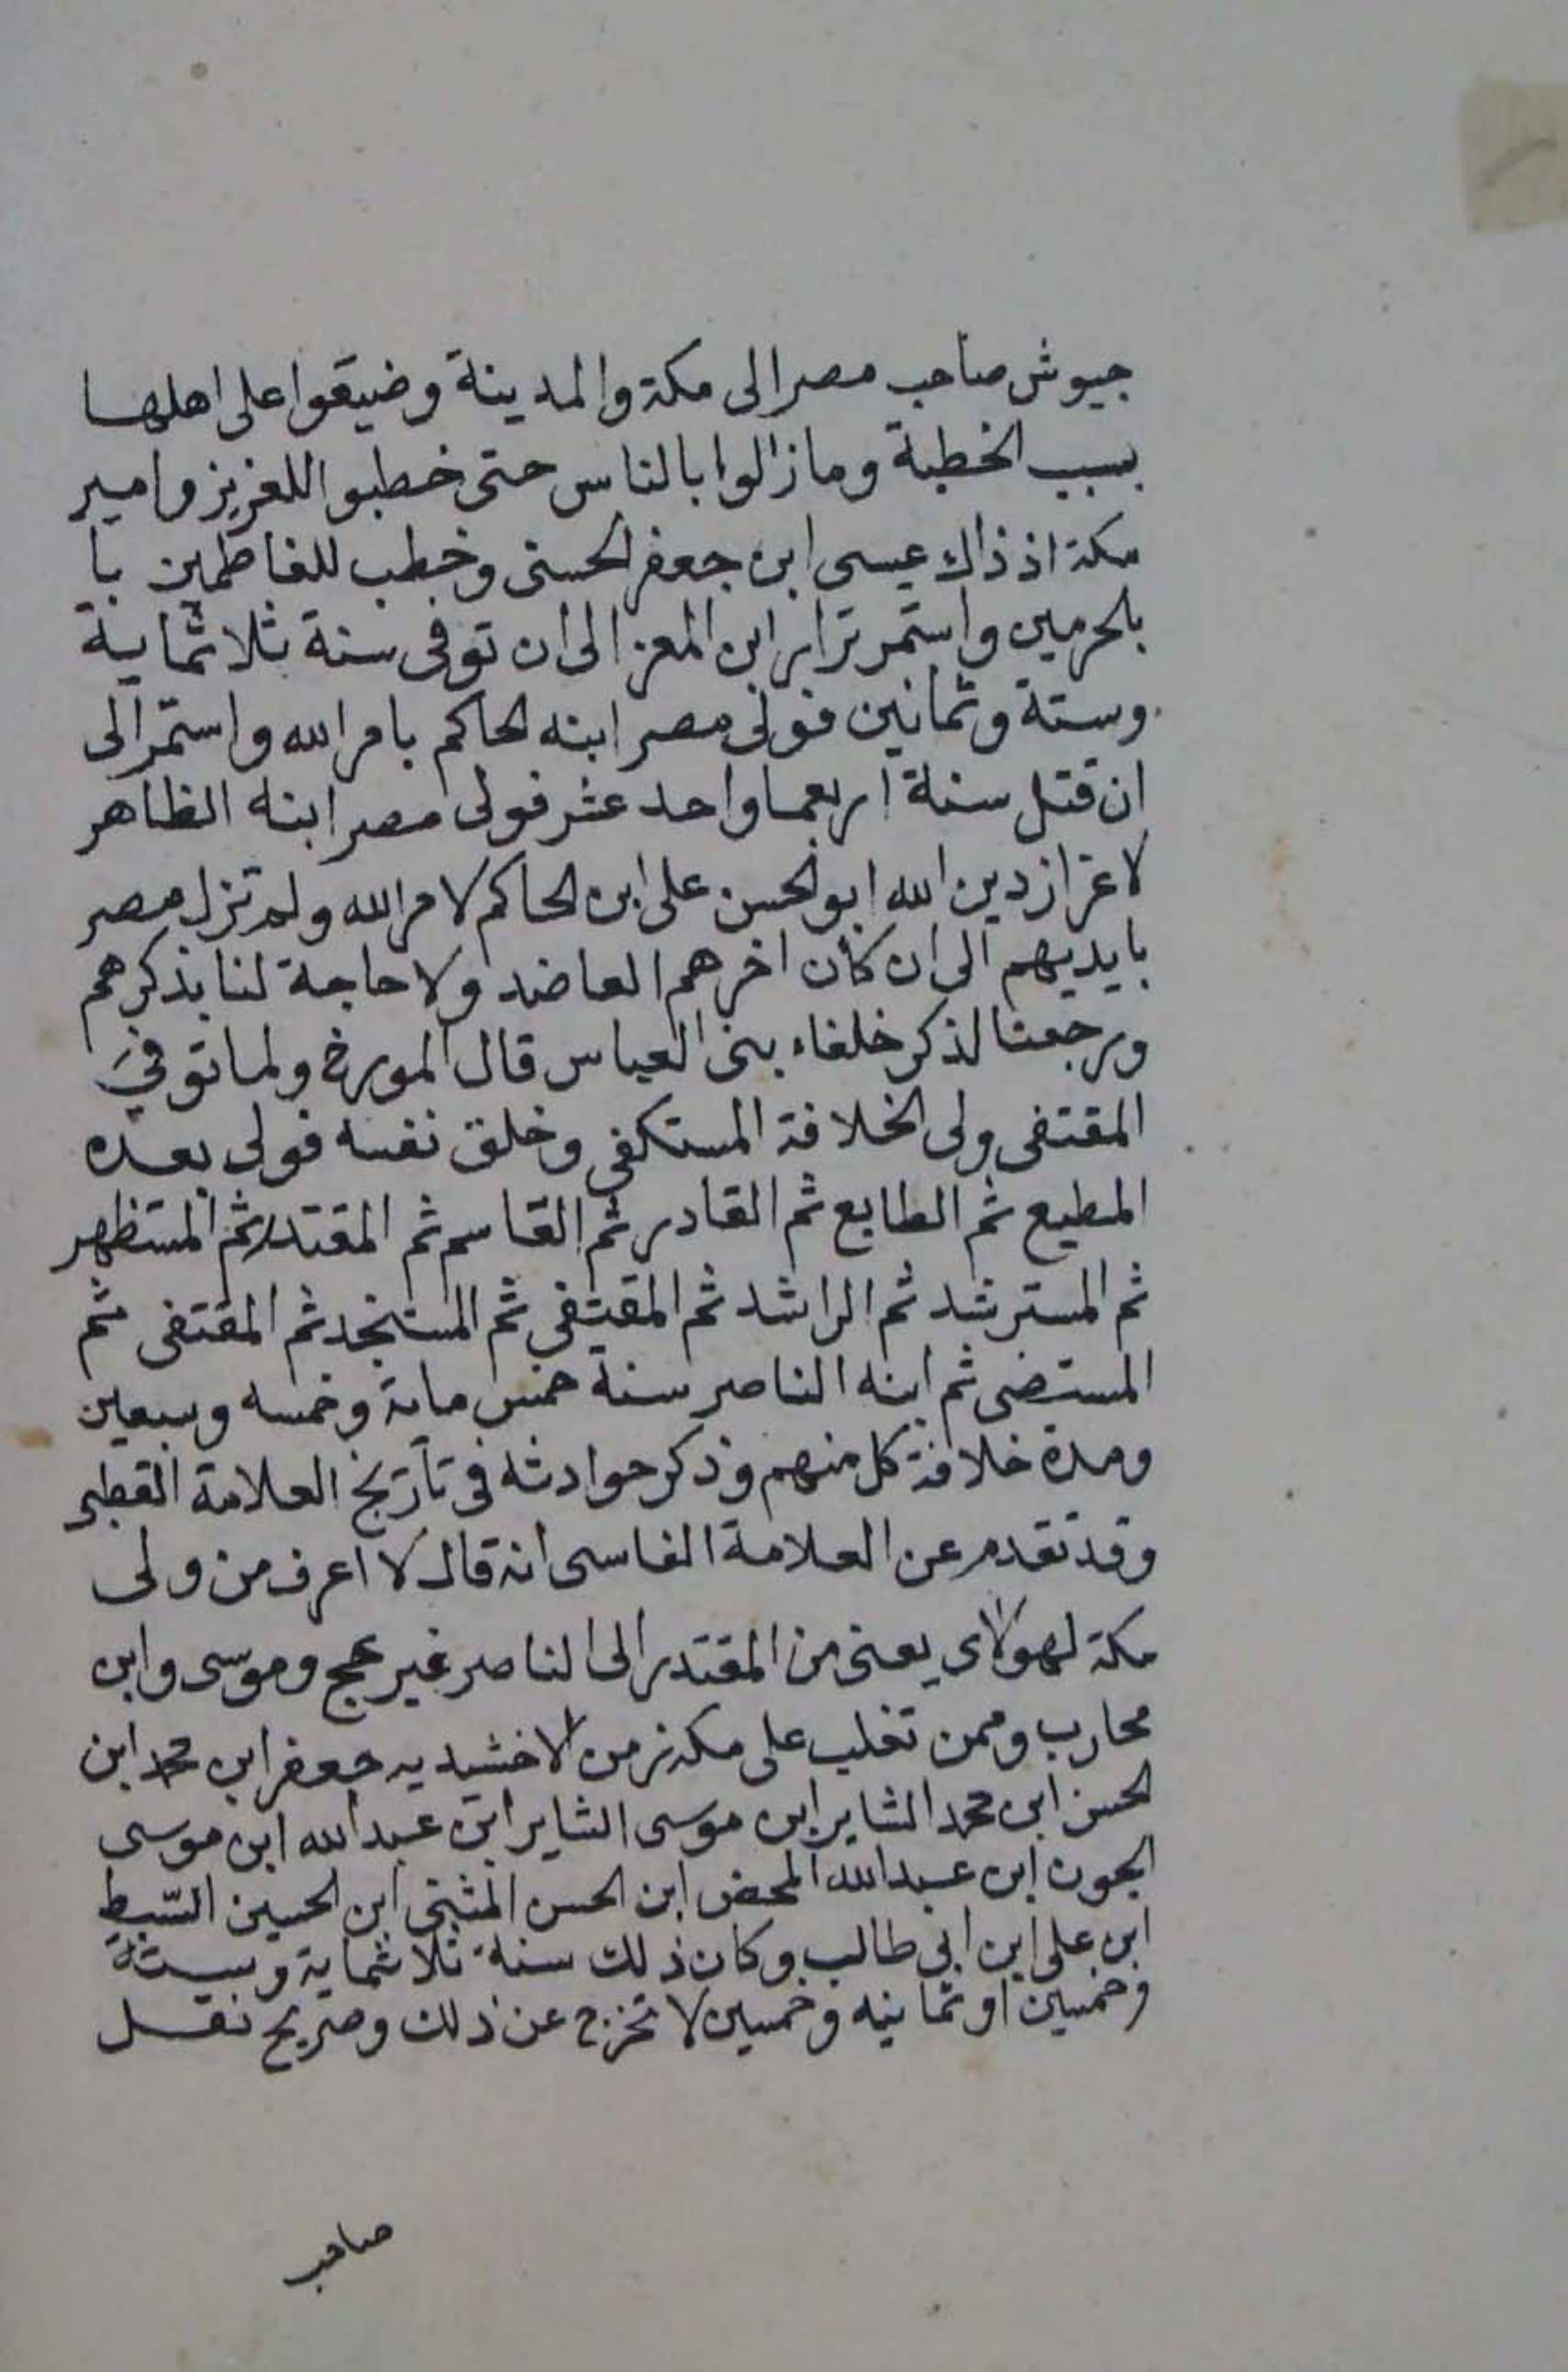 جيوش صاحب مصر الى مكة والمدينة وضيقوا على اهلها
بسبب الخطبة وما زالوا بالناس حتى خطبوا للعزيز وامير
مكة اذ ذاك عيسى ابن جعفر الحسنى وخطب للفاطمين با
بالحرمين واستمر نزار ابن المعز الى ان توفى سنة ثلاثماية
وستة وثمانين فولى مصر ابنه الحاكم بامر الله واستمر الى
ان قتل سنة اربعما واحد عشر فولى مصر ابنه الظاهر
لاعزاز دين الله ابو الحسن على ابن الحاكم لامر الله ولم تزل مصر
بايديهم الى ان كان اخرهم العاضد ولا حاجة لنا بذكرهم
ورجعنا لذكر خلفاء بنى العباس قال المورخ ولما توفي
المقتفى ولى الخلافة المستكفى وخلق نفسه فولى بعده
المطيع ثم الطايع ثم القادر ثم القاسم ثم المقتدر ثم المستظهر
ثم المسترشد ثم الراشد ثم المقتفى ثم المستنجد ثم المقتفى ثم
المستضى ثم ابنه الناصر سنة خمس ماية وخمسه وسبعين
ومدة خلافة كل منهم وذكر حوادثه فى تاريخ العلامة القطبى
وقد تقدم عن العلامة الفاسى انه قال لا اعرف من ولى
مكة لهولاى يعنى من المقتدر الى الناصر غير عج وموسى وابن
محارب وممن تغلب على مكة زمن الاخشيديه جعفر ابن محمد ابن
الحسن ابن محمد الثاير ابن موسى الثاير ابن عبد الله ابن موسى
الجون ابن عبد الله المحض ابن الحسن المثنى ابن الحسين السّبط
ابن على ابن ابى طالب وكان ذلك سنة ثلاثماية وستة
وخمسين او ثمانيه وخمسين لا تخرج عن ذلك وصريح نقل
صاحب